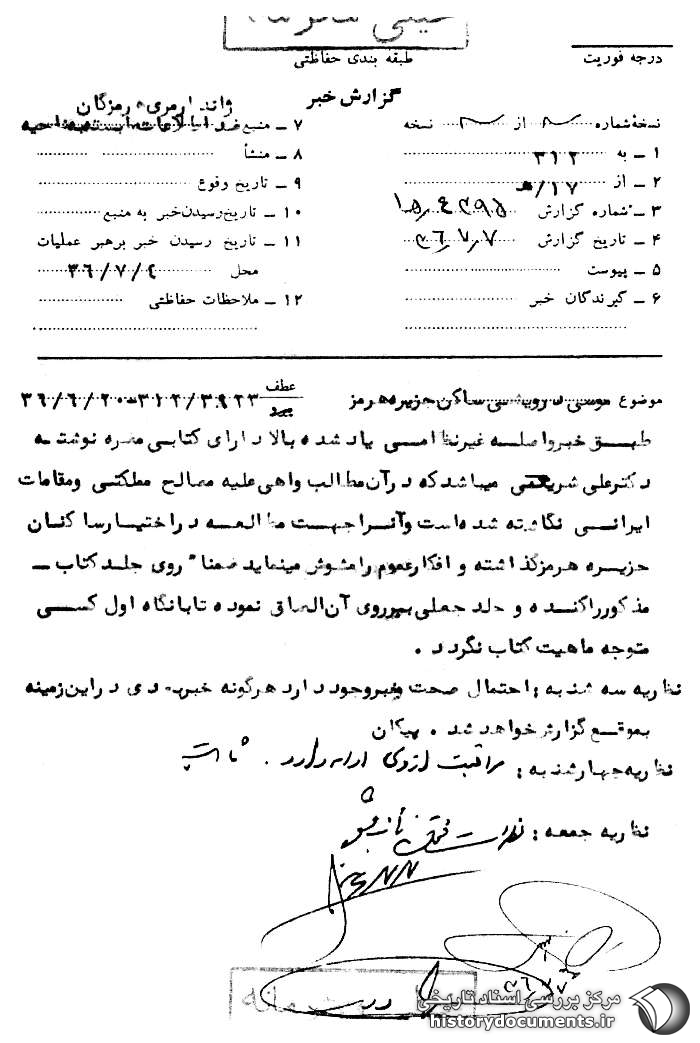 خیلی محرمانه
درجه فوریت
طبقه بندی حفاظتی
گزارش خبر
نسخهٔ شماره ۲ از ۲ نسخه
۱ ــ به ۳۱۲
۲ ــ از ۱۷/ﻫ
۳ ــ شماره گزارش
۴ ــ تاریخ گزارش ۳۶/۷/۷
۵ ــ پیوست
۶ ــ گیرندگان خبر
ژاندارمری هرمزگان
۷ ــ منبع ضد اطلاعات ناحیه
۸ ــ منشأ
۹ ــ تاریخ وقوع
۱۰ ــ تاریخ رسیدن خبر به منبع
۱۱ ــ تاریخ رسیدن خبر برهبر عملیات
محل ۳۶/۷/۴
۱۲ ــ ملاحظات حفاظتی
موضوع موسی درویشی ساکن جزیره هرمز
عطف ۳۱۲/۳۹۲۳-۳۶/۶/۲۰
طبق خبر واصله غیرنظامی یاد شده بالا دارای کتابی مضره نوشته
دکتر علی شریعتی میباشد که در آن مطالب واهی علیه مصالح مملکتی و مقامات
ایرانی نگاشته شده است و آنرا جهت مطالعه در اختیار ساکنان
جزیره هرمز گذاشته و افکار عموم را مشوش مینماید ضمنا" روی جلد کتاب ــ
مذکور را کنده و جلد جعلی بر روی آن الصاق نموده تا با نگاه اول کسی
متوجه ماهیت کتاب نگردد .
نظریه سه شنبه : احتمال صحت خبر وجود دارد هرگونه خبر بعدی در این زمینه
بموقع گزارش خواهد شد . پیکان
نظریه چهارشنبه : مراقبت از وی ادامه دارد .
نظریه جمعه :
خیلی محرمانه
مرکز بررسی اسناد تاریخی
historydocuments.ir